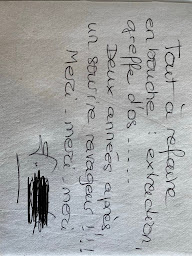 Tout à refaire
en bouche : extraction,
greffe d'os .....
Deux années après
un sourire ravageur !!!
Merci . merci . merci